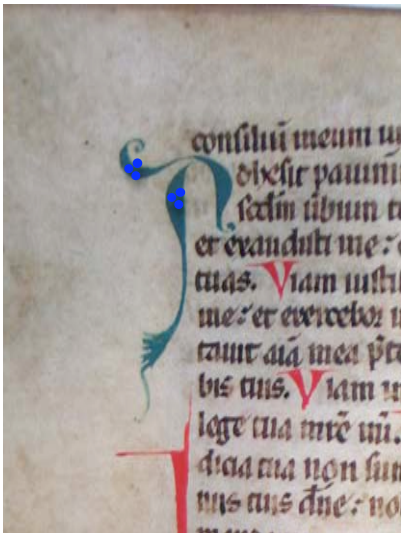 consiliū meum iu
Adhesit pauim
scdm ūbum t
et exaudisti me : d
tuas. Viam iusti
me : et exercebor i
tauit aīa mea p̄ te
bis tuis. Viam in
lege tua mrē mī.
dicia tua non sum
niis tuis dn̄e : no